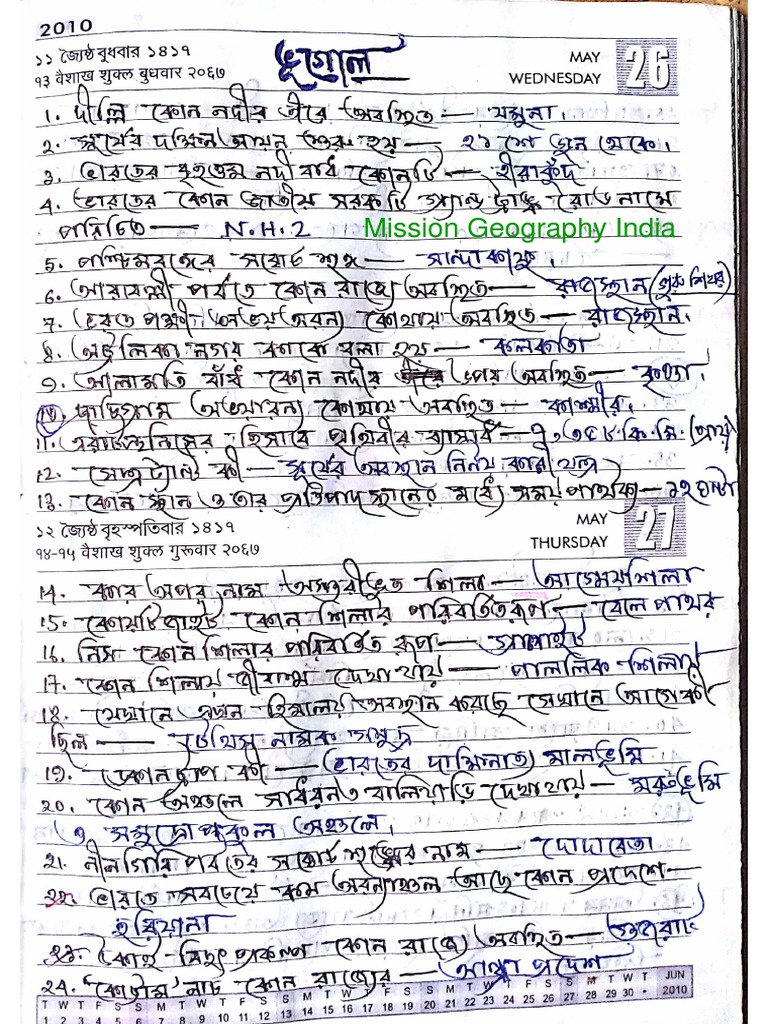 2010
১১ জ্যৈষ্ঠ বুধবার ১৪১৭
ভূগোল
MAY
26
१३ वैशाख शुक्ल बुधवार २०६७
WEDNESDAY
1. দিল্লি কোন নদীর তীরে অবস্থিত — যমুনা.
২. সূর্যের দক্ষিন আয়ন শুরু হয় — ২১ শে জুন থেকে.
৩. ভারতের বৃহত্তম নদী বাঁধ কোনটি — হীরাকুঁদ
৪. ভারতের কোন জাতীয় সরকটি গ্যান্ড ট্রাঙ্ক রোড নামে
পরিচিত — N.H.2
Mission Geography India
5. পশ্চিমবঙ্গের সর্বোচ্চ শৃঙ্গ — সান্দাকফু.
6. আরাবল্লী পর্বত কোন রাজ্যে অবস্থিত — রাজস্থান (গুরু শিখর)
7. অভয়অরন্য কোথায় অবস্থিত — রাজস্থান.
8. অট্টালিকা নগর কাকে বলা হয় — কলকাতা
9. আলামাটি বাঁধ কোন নদীর উপর অবস্থিত — কৃষ্ণা.
10. দাচিগ্রাম অভয়ারন্য কোথায় অবস্থিত — কাশ্মীর.
11. এরাটোস্থেনিসের হিসাবে পৃথিবীর ব্যাসার্ধ — কি.মি. (প্রায়)
12. সেক্সট্যান্ট কী — সূর্যের অবস্থান নির্নয় কারী যন্ত্র
13. কোন স্থান ও তার প্রতিপাদ স্থানের মধ্যে সময় পার্থক্য — ১২ ঘন্টা
১২ জ্যৈষ্ঠ বৃহস্পতিবার ১৪১৭
MAY
27
१४-१५ वैशाख शुक्ल गुरूवार २०६७
THURSDAY
14. কার অপর নাম অস্তরীভূত শিলা — আগ্নেয়শিলা
15. কোয়ার্টজাইট কোন শিলার পরিবর্তিত রূপ — বেলে পাথর
16. নিস কোন শিলার পরিবর্তিত রূপ — গ্রানাইট
17. কোন শিলায় জীবাশ্ম দেখা যায় — পাললিক শিলায়
18. যেখানে এখন হিমালয় অবস্থান করছে সেখানে আগে কী
ছিল — টেথিস নামক সমুদ্র
19. কী — ভারতের দাক্ষিনাত্য মালভূমি
২০. কোন অঞ্চলে সাধারনত বালিয়াড়ি দেখা যায় — মরুভূমি
ও সমুদ্রোপকুল অঞ্চলে.
২1. নীলগিরি পর্বতের সর্বোচ্চ শৃঙ্গের নাম — দোদাবেতা
২২. ভারতে সবচেয়ে কম অরন্যাঞ্চল আছে কোন প্রদেশে —
হরিয়ানা
২৩. বিদ্যুৎ প্রকল্প কোন রাজ্যে অবস্থিত — গুজরাট
২৪. নাচ কোন রাজ্যের — আন্ধ্রা প্রদেশ
T W T F S S M T W T F S S M T W T F S S M T W T F S S M T W T JUN
1 2 3 4 5 6 7 8 9 10 11 12 13 14 15 16 17 18 19 20 21 22 23 24 25 26 27 28 29 30 • 2010